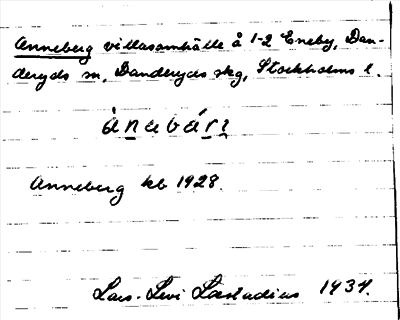 Anneberg villasamhälle å 1-2 Eneby, Dan-
deryds sn, Danderyds skg, Stockholms l.
ànabárɩ
Anneberg kb 1928.
Lars-Levi Læstadius 1934.